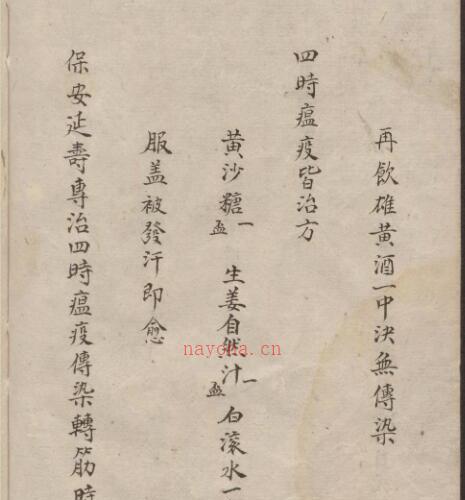 再飲雄黃酒一中決無傳染
四時瘟疫皆治方
黃沙糖一盃 生姜自然汁一盃 白滚水一
服盖被發汗即愈
保安延壽專治四時瘟疫傳染轉筋時
nayona.cn